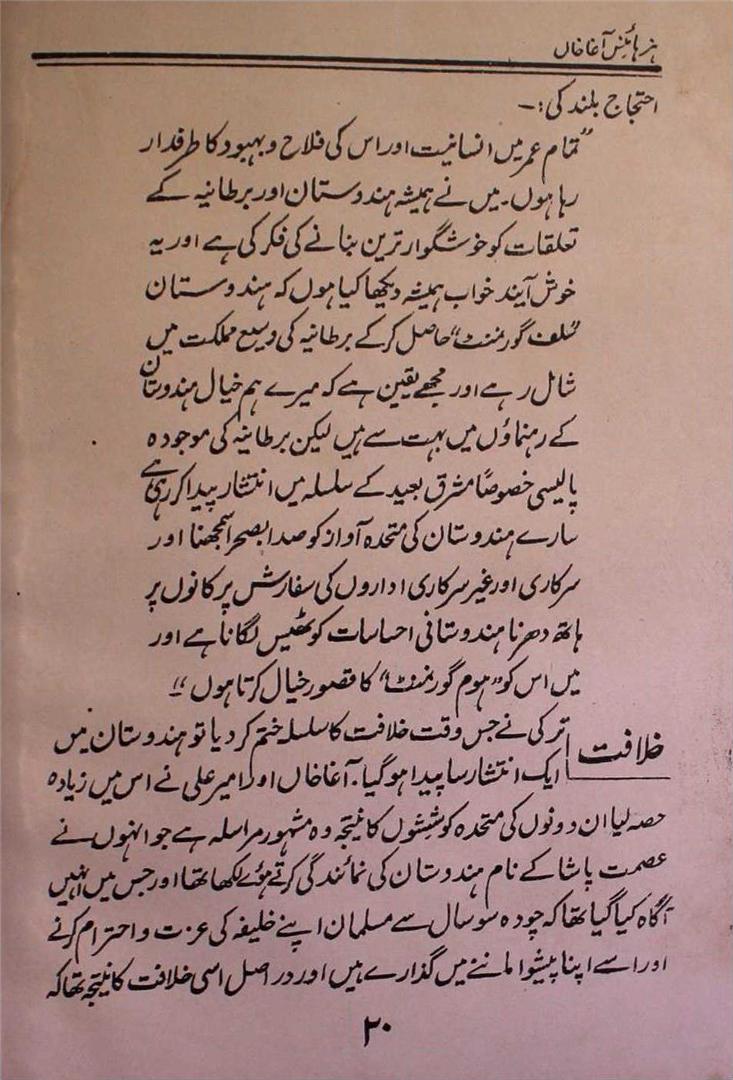 ہزہائنس آغا خاں
احتجاج بلند کی:۔
"تمام عمر میں انسانیت اور اس کی فلاح و بہبود کا طرفدار
رہا ہوں۔ میں نے ہمیشہ ہندوستان اور برطانیہ کے
تعلقات کو خوشگوار ترین بنانے کی فکر کی ہے اور یہ
خوش آیند خواب ہمیشہ دیکھا کیا ہوں کہ ہندوستان
"سلف گورمنٹ" حاصل کر کے برطانیہ کی وسیع مملکت میں
شامل رہے اور مجھے یقین ہے کہ میرے ہم خیال ہندوستان
کے رہنماؤں میں بہت سے ہیں لیکن برطانیہ کی موجودہ
پالیسی خصوصاً مشرق بعید کے سلسلہ میں انتشار پیدا کر رہی ہے
سارے ہندوستان کی متحدہ آواز کو صدا بصحرا سمجھنا اور
سرکاری اور غیر سرکاری اداروں کی سفارش پر کانوں پر
ہاتھ دھرنا ہندوستانی احساسات کو ٹھیس لگانا ہے اور
میں اس کو "ہوم گورمنٹ" کا قصور خیال کرتا ہوں"۔
خلافت ترکی نے جس وقت خلافت کا سلسلہ ختم کر دیا تو ہندوستان میں
ایک انتشار سا پیدا ہو گیا۔ آغا خاں اور امیر علی نے اس میں زیادہ
حصہ لیا ان دونوں کی متحدہ کوششوں کا نتیجہ وہ مشہور مراسلہ ہے جو انہوں نے
عصمت پاشا کے نام ہندوستان کی نمائندگی کرتے ہوئے لکھا تھا اور جس میں انہیں
آگاہ کیا گیا تھا کہ چودہ سو سال سے مسلمان اپنے خلیفہ کی عزت و احترام کرنے
اور اسے اپنا پیشوا ماننے میں گذارے ہیں اور در اصل اسی خلافت کا نتیجہ تھا کہ
۲۰